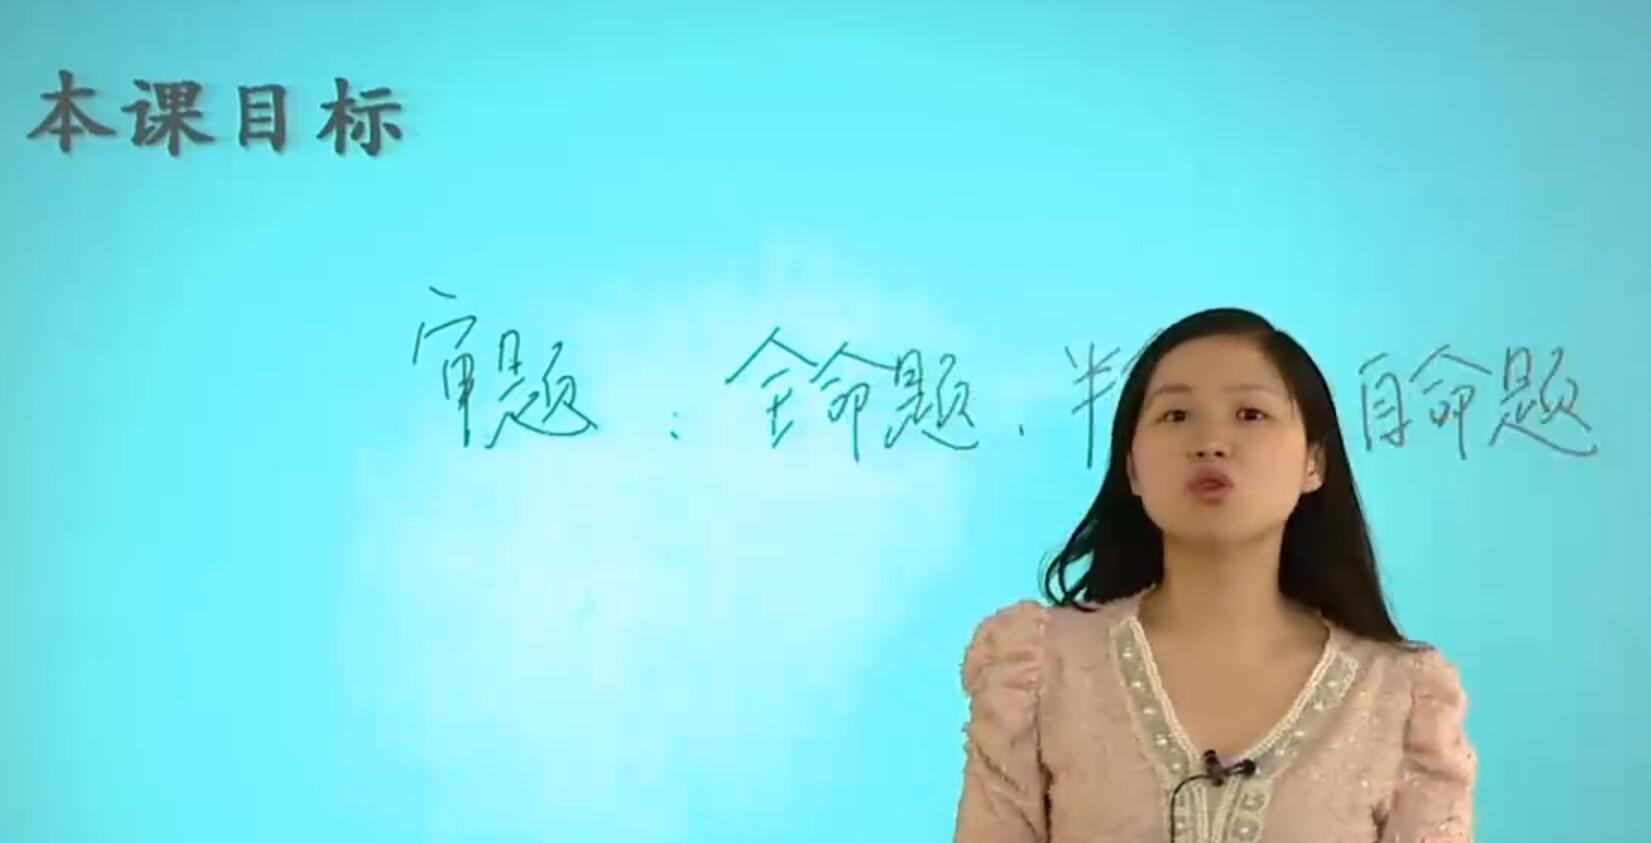 本课目标
审题：全命题、半 自命题